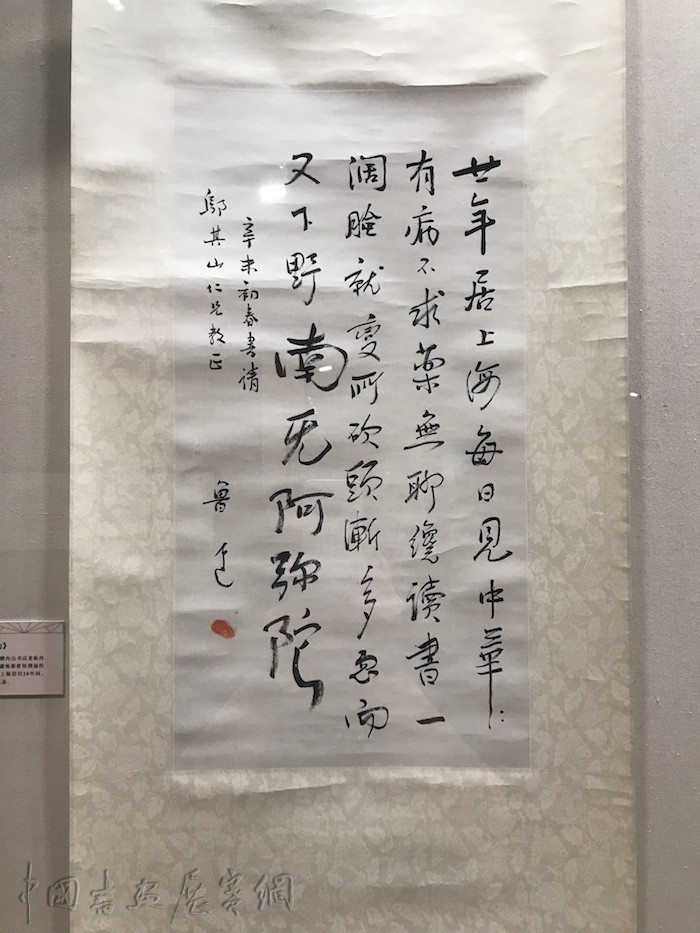 廿年居上海每日見中華
有病不求藥無聊纔讀書一
阔臉就變所砍頭漸多忽而
又下野南无阿弥陀
辛未初春書請
鄔其山仁兄教正
魯迅
上海居住20年间
中國書畫展賽網